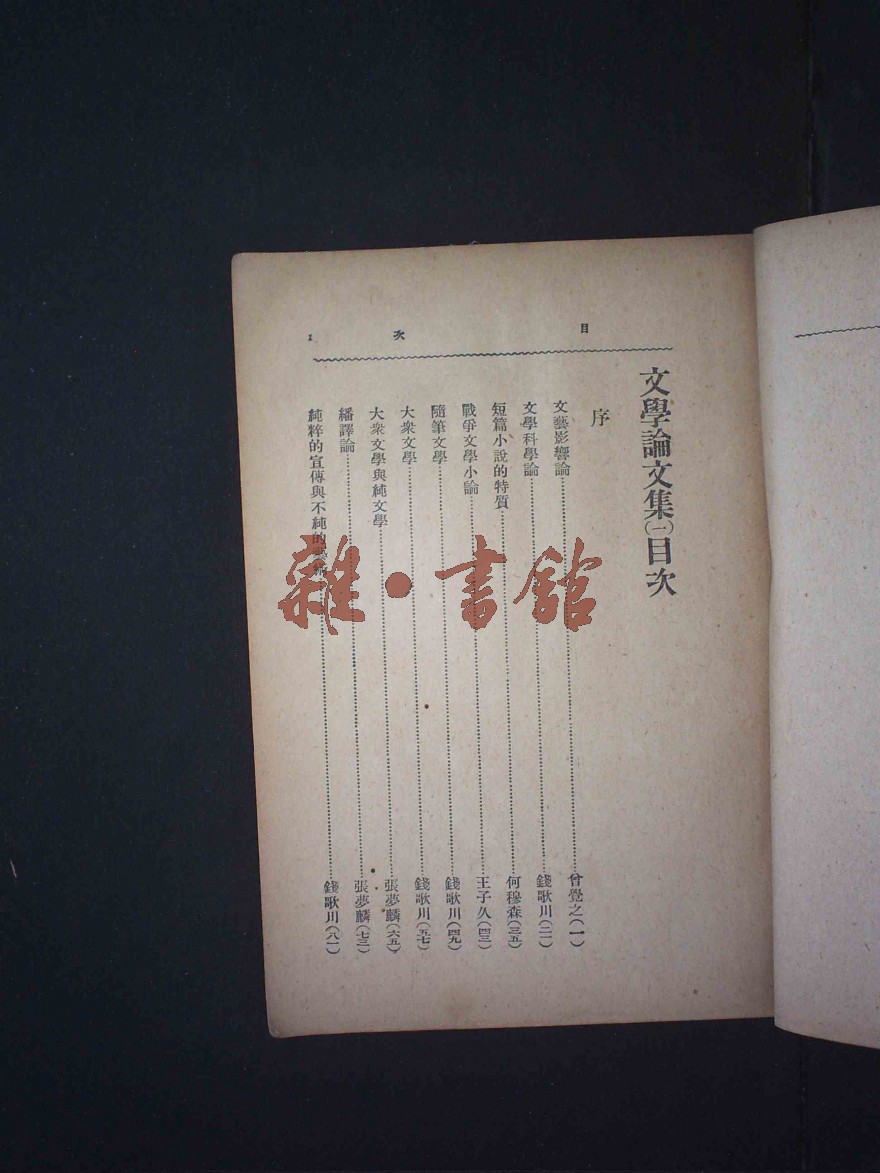 目次
1
文學論文集㈠目次
序
文藝影響論……曾覺之(一)
文學科學論……錢歌川(二一)
短篇小說的特質……何穆森(三五)
戰爭文學小論……王子久(四三)
隨筆文學……錢歌川(四九)
大衆文學……錢歌川(五七)
大衆文學與純文學……張夢麟(六五)
繙譯論……張夢麟(七三)
純粹的宣傳與不純的……錢歌川(八一)
雜·書館